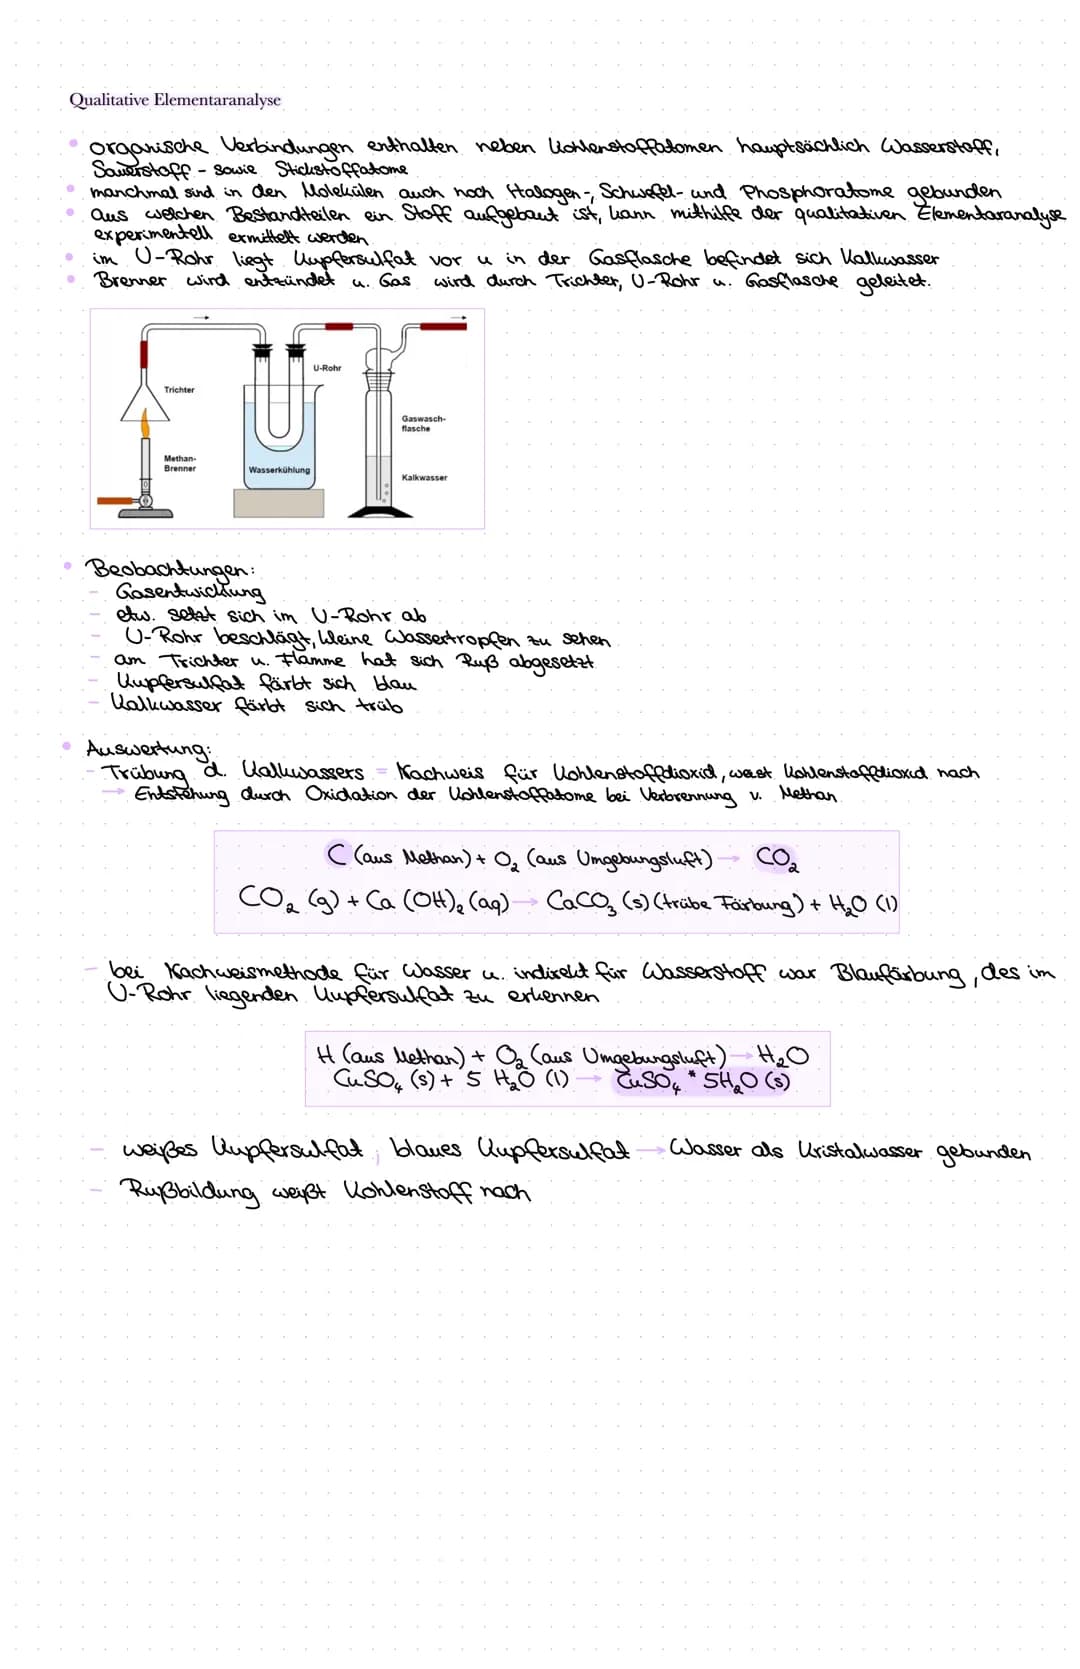 Qualitative Elementaranalyse
organische Verbindungen enthalten neben Kohlenstoffatomen hauptsächlich Wasserstoff,
Sauerstoff - sowie Stickstoffatome
manchmal sind in den Molekülen auch noch Halogen-, Schwefel- und Phosphoratome gebunden
aus welchen Bestandteilen ein Stoff aufgebaut ist, kann mithilfe der qualitativen Elementaranalyse
experimentell ermittelt werden
im U-Rohr liegt Kupfersulfat vor u in der Gasflasche befindet sich Kalkwasser
Brenner wird entzündet u. Gas wird durch Trichter, U-Rohr u. Gasflasche geleitet.
U-Rohr
Trichter
Gaswasch-
flasche
Methan-
Brenner
Wasserkühlung
Kalkwasser
Beobachtungen:
- Gasentwicklung
- etw. setzt sich im U-Rohr ab
- U-Rohr beschlägt, kleine Wassertropfen zu sehen
- am Trichter u. Flamme hat sich Ruß abgesetzt
- Kupfersulfat färbt sich blau
- Kalkwasser färbt sich trüb
Auswertung:
- Trübung d. Kalkwassers = Nachweis für Kohlenstoffdioxid, weist Kohlenstoffdioxid nach
→ Entstehung durch Oxidation der Kohlenstoffatome bei Verbrennung v. Methan
C (aus Methan) + O₂ (aus Umgebungsluft) → CO₂
CO₂ (g) + Ca (OH)₂ (aq) → CaCO₃ (s) (trübe Färbung) + H₂O (l)
- bei Nachweismethode für Wasser u. indirekt für Wasserstoff war Blaufärbung, des im
U-Rohr liegenden Kupfersulfat zu erkennen
H (aus Methan) + O₂ (aus Umgebungsluft) → H₂O
CuSO₄ (s) + 5 H₂O (l) → CuSO₄ * 5H₂O (s)
- weißes Kupfersulfat ; blaues Kupfersulfat → Wasser als Kristalwasser gebunden
- Rußbildung weißt Kohlenstoff nach